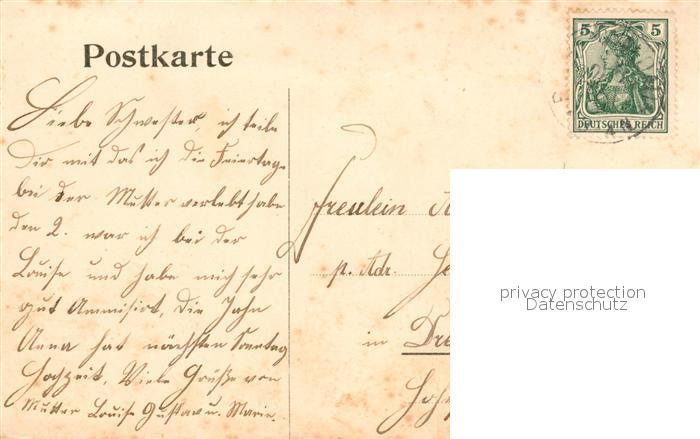 Postkarte
Liebe Schwester, ich teile
Dir mit das ich die Feiertage
bei der Mutter verlebt habe
den 2. war ich bei der
Louise und habe mich sehr
gut Ammisirt, Die Jahn
Anna hat nächsten Sonntag
Hochzeit. Viele Grüße von
Mutter Louise Gustav u. Marie.
5 5
DEUTSCHES REICH
Freulein
p. Adr.
in Dre
privacy protection
Datenschutz